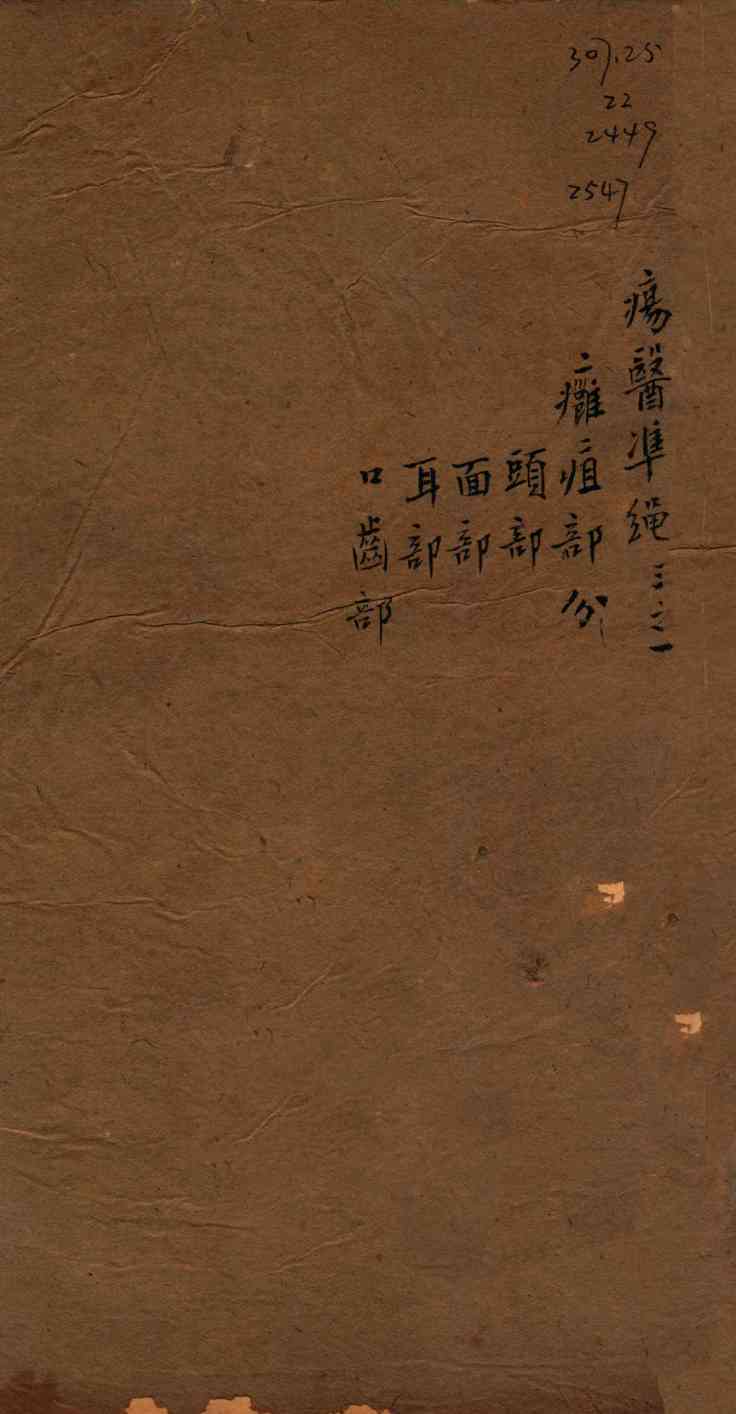 307.25
22
2449
2547
瘍醫準繩三之一
癰疽部分
頭部
面部
耳部
口齒部